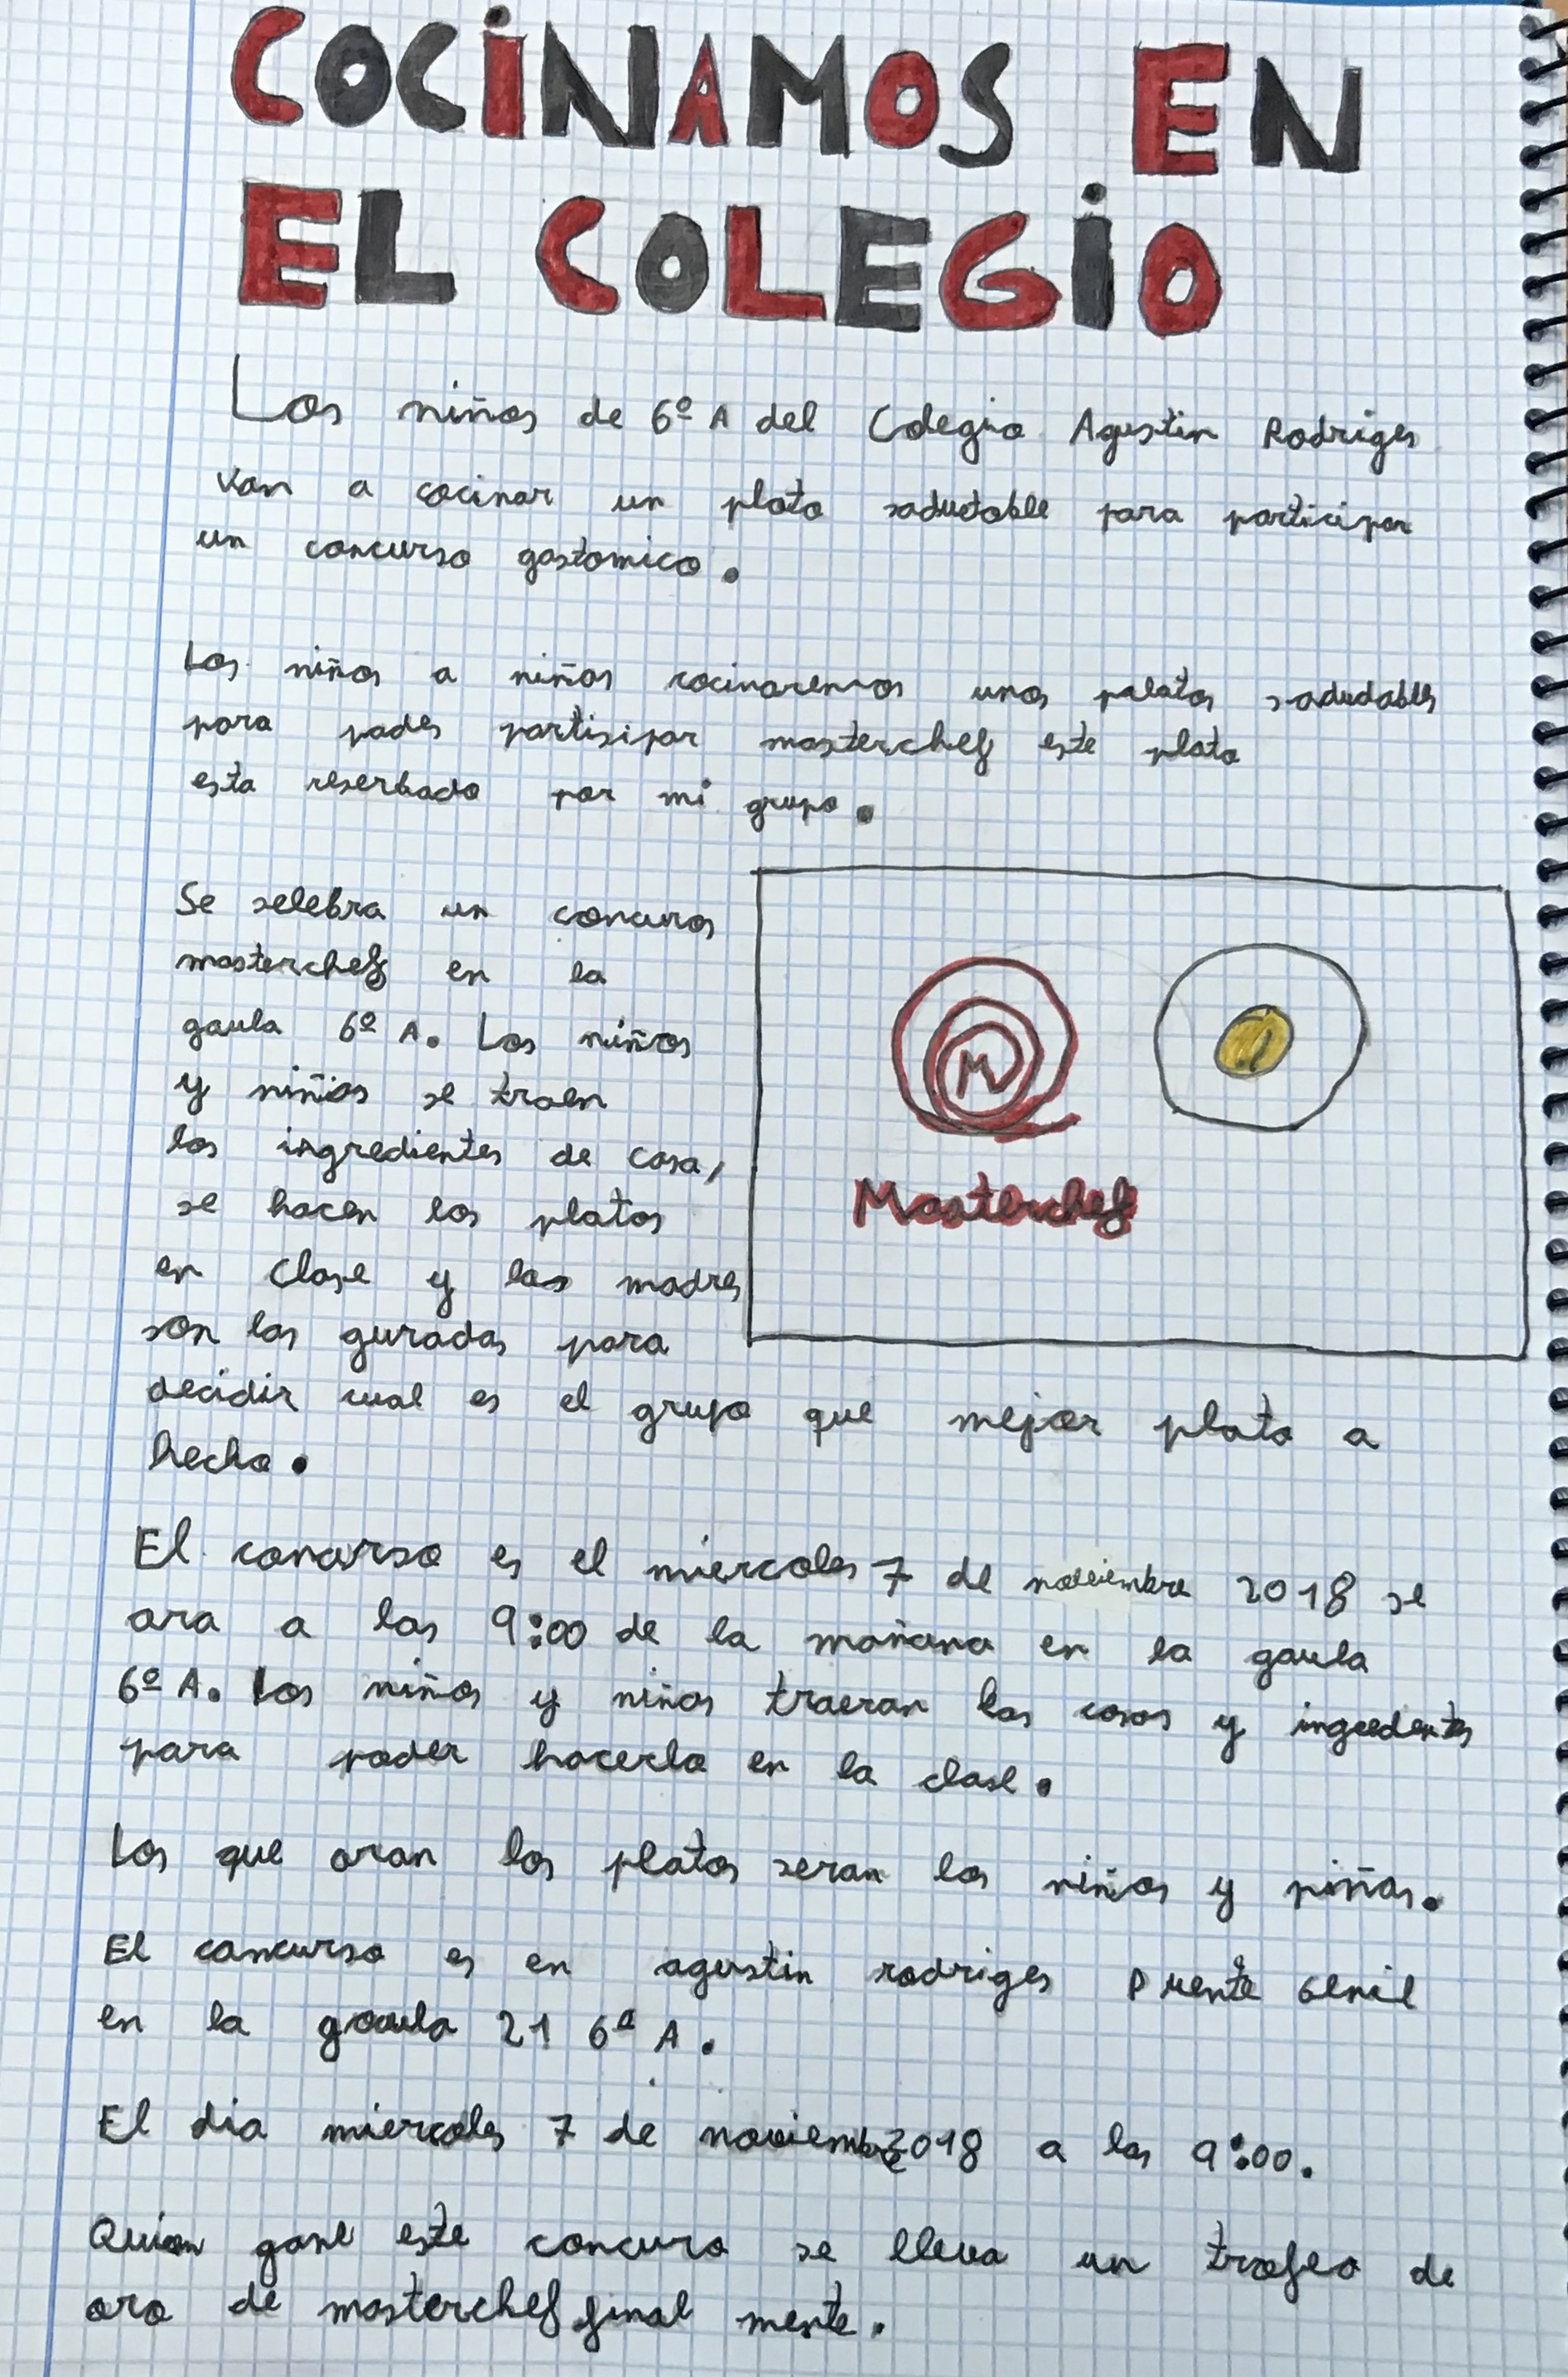 COCINAMOS EN
EL COLEGIO
Los niños de 6º A del Colegio Agustin Rodriges
van a cocinar un plato saduetable para participar
un concurso gastomico.
Los niños a niños cocinaremos unos palatos sadudables
para pades partisipar masterchef este plato
esta reserbado por mi grupo.
Se selebra un concuros
masterchef en la
gaula 6º A. Los niños
y niños se traen
los ingredientes de casa,
se hacen los platos
en clase y las madres
son las guradas para
decidir cual es el grupo que mejor plato a
hecho.
M
Masterchef
El concurso es el miercoles 7 de noviembre 2018 se
ara a las 9:00 de la mañana en la gaula
6º A. Los niños y niños traeran las cosas y ingredentes
para poder hacerlo en la clase.
Los que aran los platos seran los niños y niñas.
El cancurso es en agustin rodriges Puente Genil
en la gaula 21 6ª A.
El dia miercoles 7 de noviembre 2018 a las 9:00.
Quien gane este concuro se lleva un trofeo de
oro de masterchef final mente.